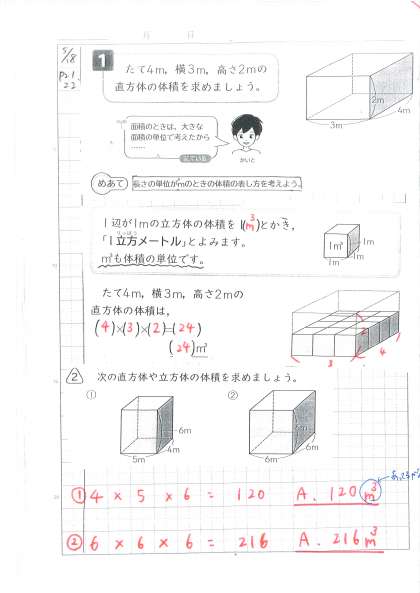 月 日
5/18
P21.
22
1
たて4m，横3m，高さ2mの
直方体の体積を求めましょう。
2m
4m
3m
面積のときは，大きな
面積の単位で考えたから
……
かいと
めあて 長さの単位がmのときの体積の表し方を考えよう。
1辺が1mの立方体の体積を 1(m³)とかき，
「1立方メートル」とよみます。
m³も体積の単位です。
1m³
1m
1m
1m
たて4m，横3m，高さ2mの
直方体の体積は，
(4)×(3)×(2)=(24)
(24)m³
2
3
4
2 次の直方体や立方体の体積を求めましょう。
① ②
6m
4m
5m
6m
6m
6m
① 4 × 5 × 6 = 120 A. 120m³
② 6 × 6 × 6 = 216 A. 216m³